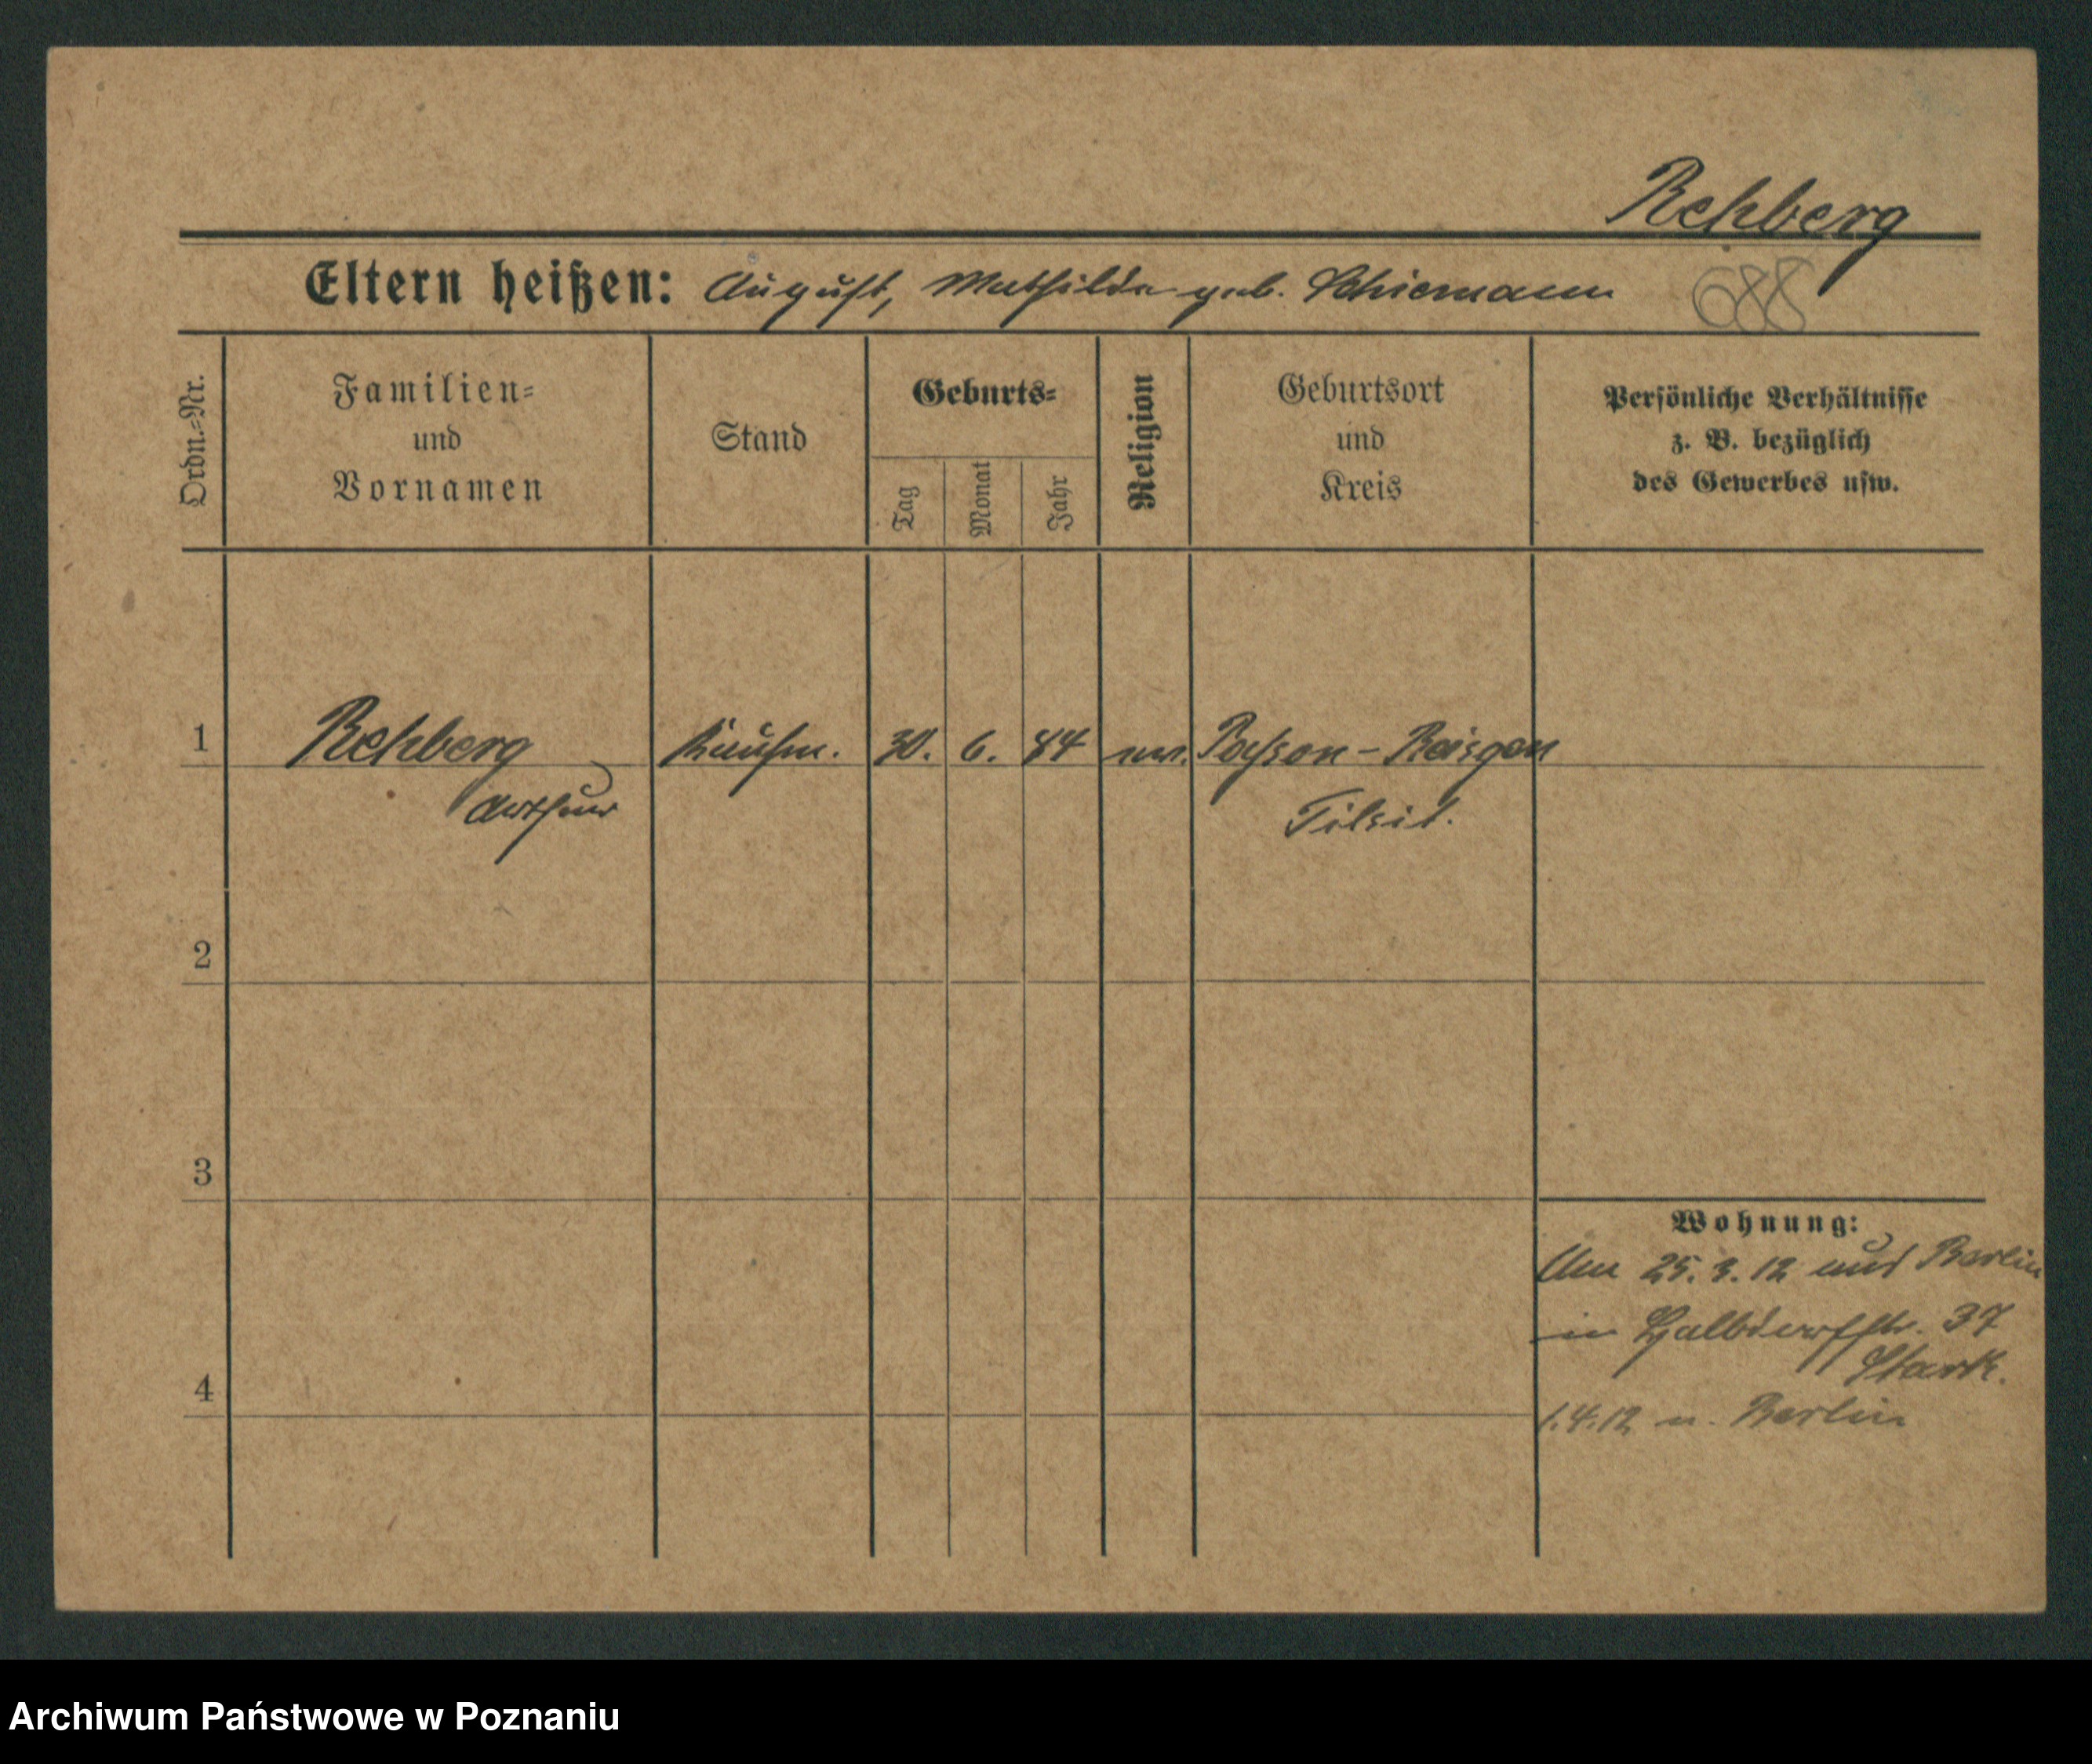 Rehberg
Eltern heißen: August, Mathilde geb. Schiemann
688
Ordn.-Nr.
Familien-
und
Vornamen
Stand
Geburts-
Tag
Monat
Jahr
Religion
Geburtsort
und
Kreis
Persönliche Verhältnisse
z. B. bezüglich
des Gewerbes usw.
1 Rehberg Kaufm. 30. 6. 84
Arthur Tilsit.
2
3
4
Wohnung:
Am 25. 3. 12 aus Berlin
in Halbdorfstr. 37
Stark.
1.4.12 n. Berlin
Archiwum Państwowe w Poznaniu